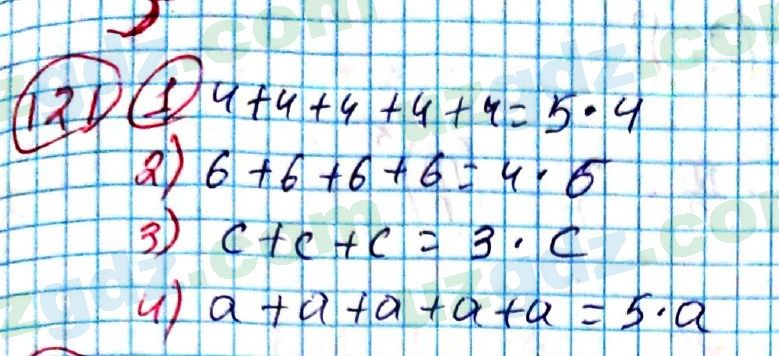 121 1 4+4+4+4+4=5·4
2) 6+6+6+6=4·6
3) c+c+c=3·c
4) a+a+a+a+a=5·a